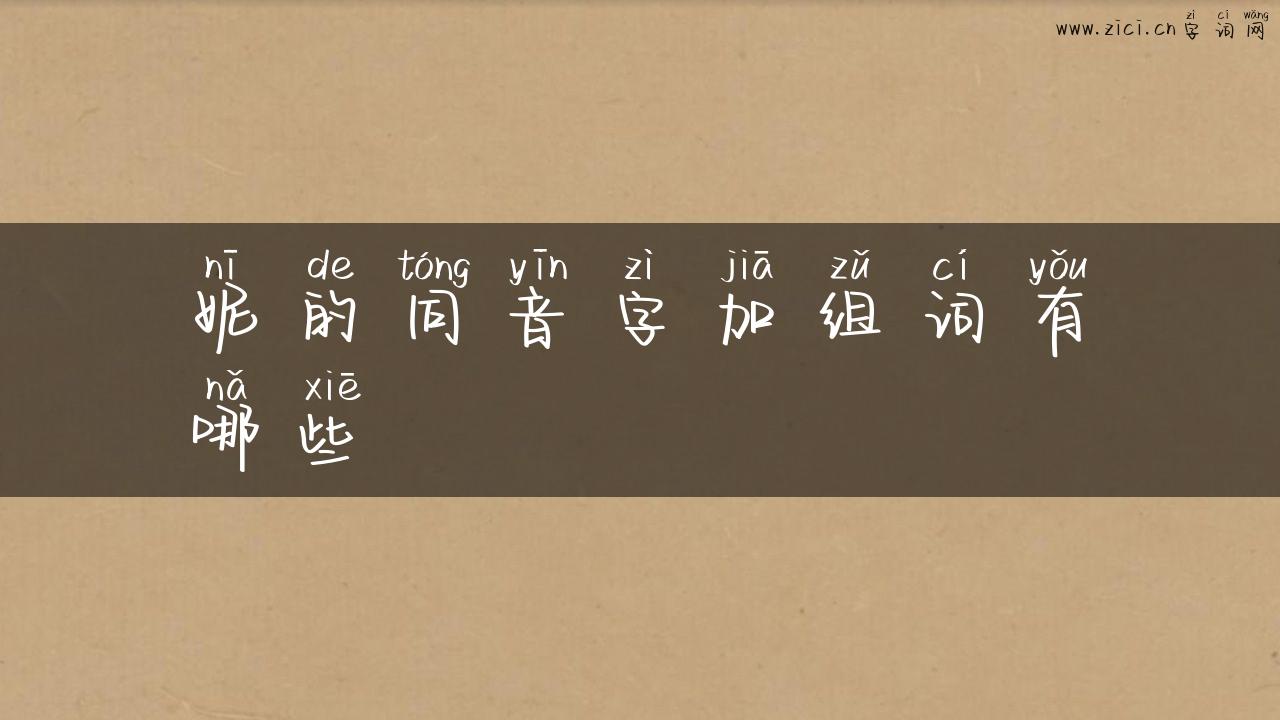 zì cí wǎng
www.zici.cn 字 词 网
nī de tóng yīn zì jiā zǔ cí yǒu
妮 的 同 音 字 加 组 词 有
nǎ xiē
哪 些